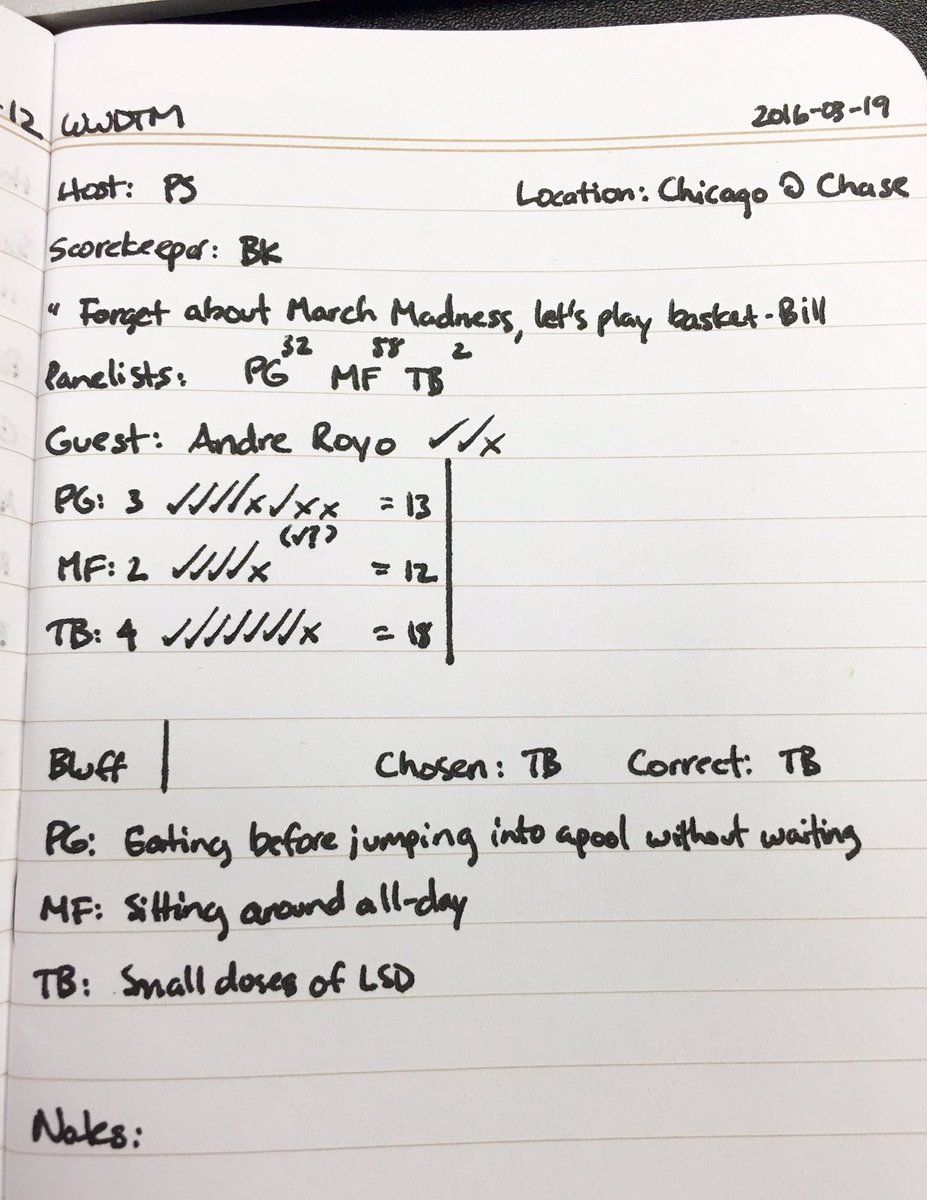 -12 WWDTM 2016-03-19
Host: PS Location: Chicago @ Chase
Scorekeeper: BK
" Forget about March Madness, let's play basket-Bill
Panelists: PG 32 MF 58 TB 2
Guest: Andre Royo ✓✓x
PG: 3 ✓✓✓✓x✓xx = 13
(✓?)
MF: 2 ✓✓✓✓x = 12
TB: 4 ✓✓✓✓✓✓✓x = 18
Bluff Chosen: TB Correct: TB
PG: Eating before jumping into a pool without waiting
MF: Sitting around all-day
TB: Small doses of LSD
Notes: